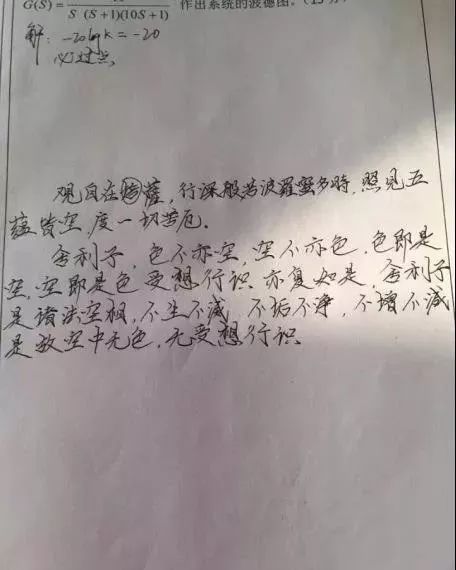 G(S)= S (S+1)(10S+1) 作出系统的波德图。(15分)
解: -20lgk = -20
必过点
观自在菩薩,行深般若波羅蜜多時,照见五
蕴皆空,度一切苦厄.
舍利子,色不亦空,空不亦色,色即是
空,空即是色 受想行识 亦复如是,舍利子
是诸法空相,不生不滅,不垢不净,不增不减
是故空中无色,无受想行识